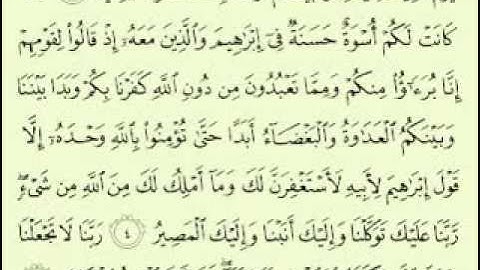 كَانَتْ لَكُمْ أُسْوَةٌ حَسَنَةٌ فِىٓ إِبْرَٰهِيمَ وَٱلَّذِينَ مَعَهُۥٓ إِذْ قَالُوا۟ لِقَوْمِهِمْ
إِنَّا بُرَءَٰٓؤُا۟ مِنكُمْ وَمِمَّا تَعْبُدُونَ مِن دُونِ ٱللَّهِ كَفَرْنَا بِكُمْ وَبَدَا بَيْنَنَا
وَبَيْنَكُمُ ٱلْعَدَٰوَةُ وَٱلْبَغْضَآءُ أَبَدًا حَتَّىٰ تُؤْمِنُوا۟ بِٱللَّهِ وَحْدَهُۥٓ إِلَّا
قَوْلَ إِبْرَٰهِيمَ لِأَبِيهِ لَأَسْتَغْفِرَنَّ لَكَ وَمَآ أَمْلِكُ لَكَ مِنَ ٱللَّهِ مِن شَىْءٍ ۖ
رَّبَّنَا عَلَيْكَ تَوَكَّلْنَا وَإِلَيْكَ أَنَبْنَا وَإِلَيْكَ ٱلْمَصِيرُ ٤ رَبَّنَا لَا تَجْعَلْنَا